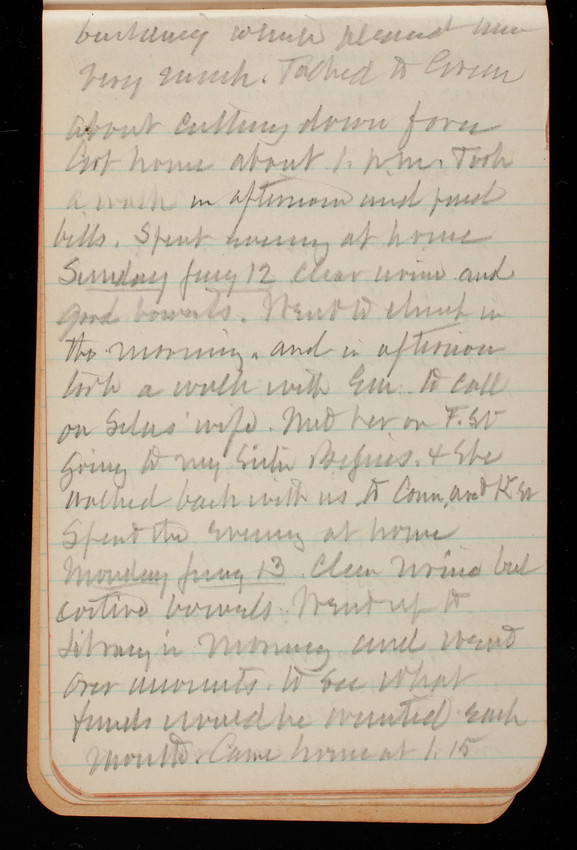 building which pleased him
very much. Talked to Green
about cutting down force
Got home about 1. p.m. Took
a walk in afternoon and paid
bills. Spent evening at home
Sunday Jany 12 clear urine and
good bowels. Went to church in
the morning. and in afternoon
took a walk with Em to call
on Silas' wife. Met her on F. St
going to my Sister & She
walked back with us to Conn, and K St
Spent the Evening at home
Monday Jany 13. Clear Urine but
costive bowels. Went up to
Library in Morning and went
over accounts. to see what
funds would be wanted each
month. Came home at 1.15